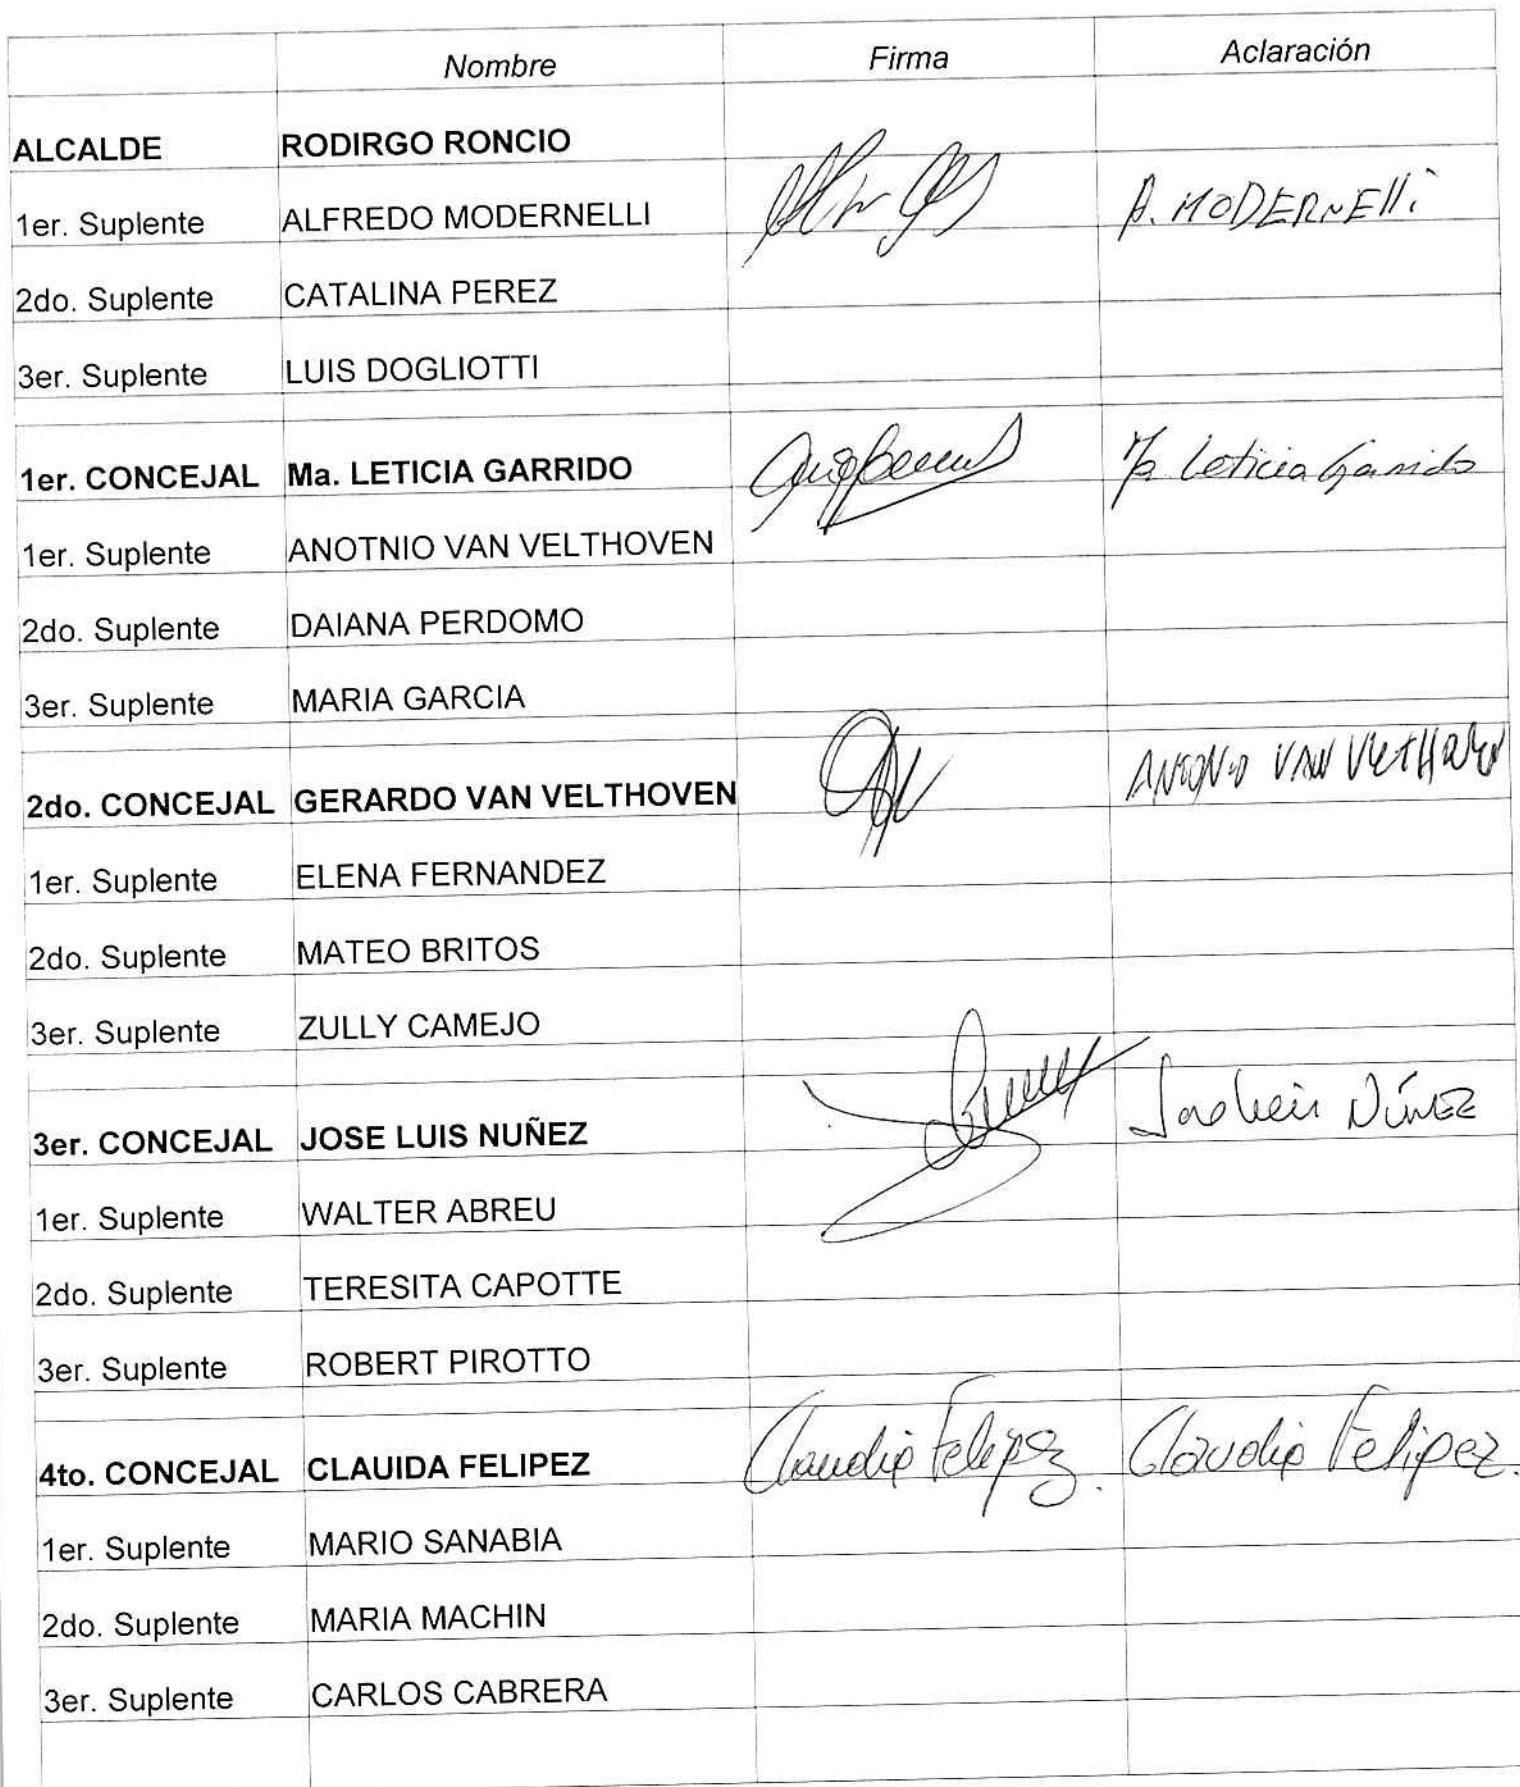 Nombre Firma Aclaración
ALCALDE RODIRGO RONCIO
1er. Suplente ALFREDO MODERNELLI A. MODERNElli
2do. Suplente CATALINA PEREZ
3er. Suplente LUIS DOGLIOTTI
1er. CONCEJAL Ma. LETICIA GARRIDO Ma Leticia Garrido
1er. Suplente ANOTNIO VAN VELTHOVEN
2do. Suplente DAIANA PERDOMO
3er. Suplente MARIA GARCIA
2do. CONCEJAL GERARDO VAN VELTHOVEN ANTONIO VAN VELTHOVEN
1er. Suplente ELENA FERNANDEZ
2do. Suplente MATEO BRITOS
3er. Suplente ZULLY CAMEJO
3er. CONCEJAL JOSE LUIS NUÑEZ NÚÑEZ
1er. Suplente WALTER ABREU
2do. Suplente TERESITA CAPOTTE
3er. Suplente ROBERT PIROTTO
4to. CONCEJAL CLAUIDA FELIPEZ Claudia Felipez. Claudia Felipez.
1er. Suplente MARIO SANABIA
2do. Suplente MARIA MACHIN
3er. Suplente CARLOS CABRERA